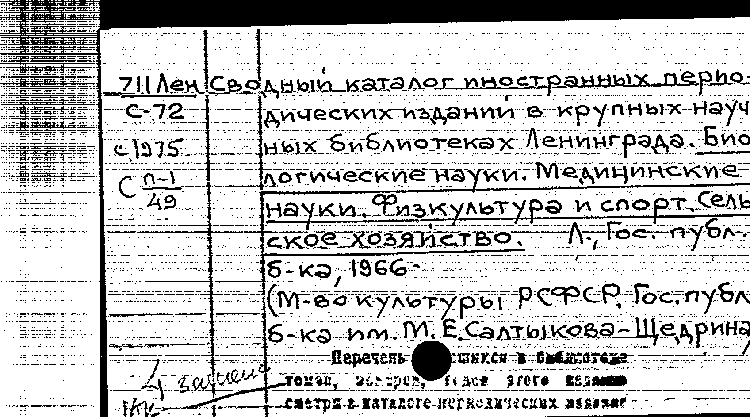 711Лен Сводный каталог иностранных перио-
С-72 дических изданий в крупных науч
с 1975 ных библиотеках Ленинграда. Био
С п-1/49 логические науки. Медицинские
науки. Физкультура и спорт. Сель
ское хозяйство. Л., Гос. публ.
б-ка, 1966-
(М-во культуры РСФСР. Гос. публ
б-ка им. М. Е. Салтыкова-Щедрина
Перечень в библиотеке
томах, этого издания
смотри в каталоге периодических изданий